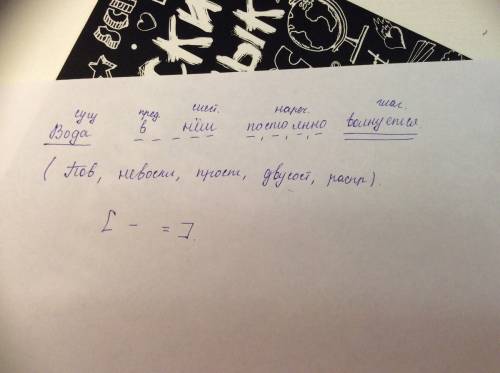 сущ пред. мест. нареч. глаг.
Вода в нём постоянно волнуется.
( Пов, невоскл, прост, двусост, распр).
[ – = ].